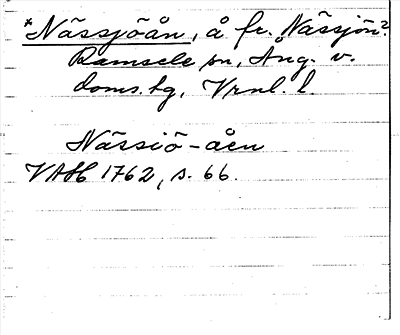 *Nässjöån, å fr. Nässjön?
Ramsele sn, Ång. v.
doms.tg, Vrnl. l.
Nässiö-åen
VAH 1762, s. 66.